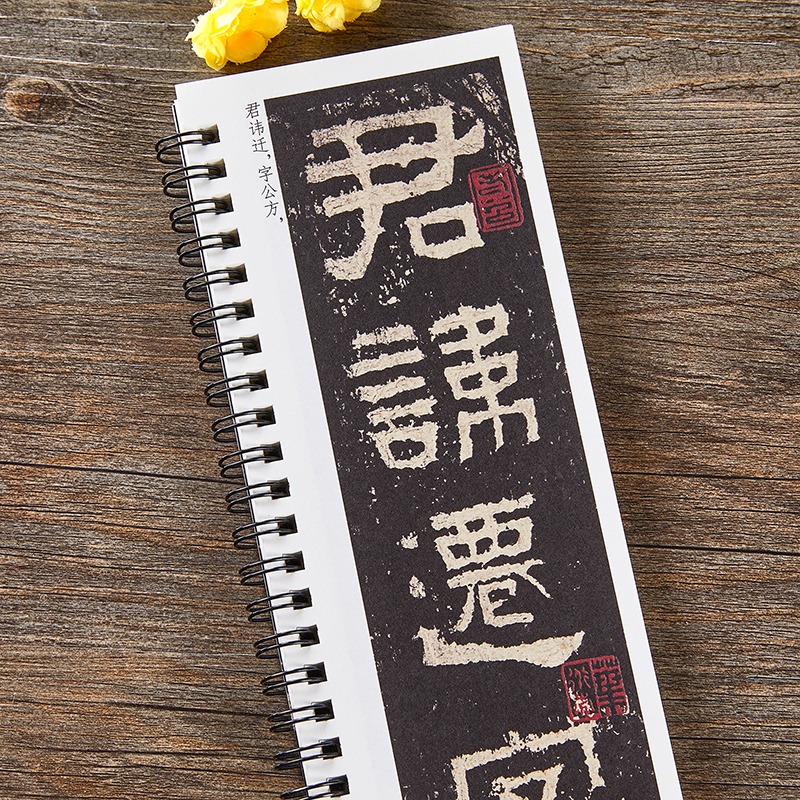 君諱遷字
君讳迁，字公方，